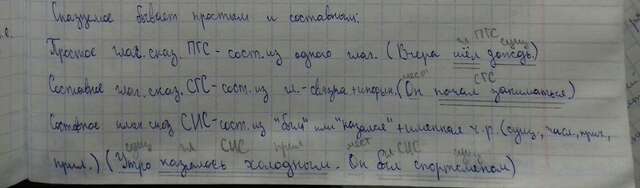 Сказуемое бывает простым и составным:
гл ПГС сущ
Простое глаг. сказ. ПГС - сост. из одного глаг. (Вчера шёл дождь.)
мест СГС
Составное глаг. сказ. СГС - сост. из гл.-связка + инфин. (Он начал заниматься.)
Составное имен. сказ СИС - сост. из "был" или "казался" + именная ч.р. (сущ, числ, прил,
сущ гл СИС прил мест гл СИС сущ
прил.) (Утро казалось холодным. Он был спортсменом)